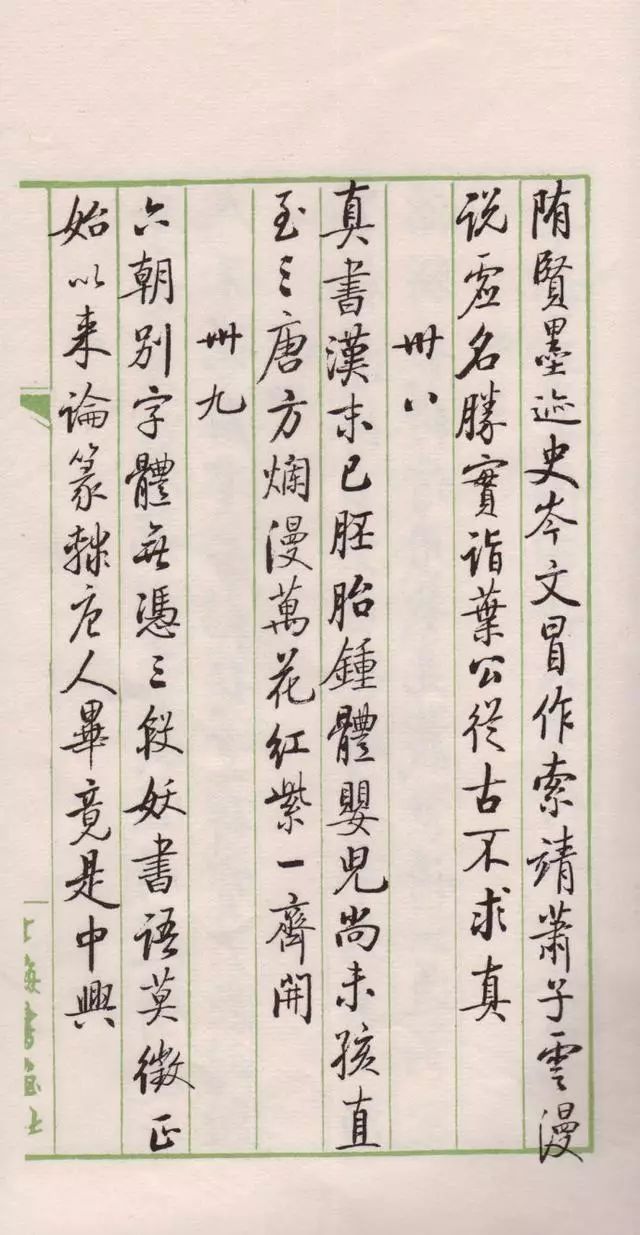 隋賢墨迹史岑文冒作索靖蕭子雲漫
说虚名勝實詣葉公從古不求真
卅八
真書漢末已胚胎鍾體嬰兒尚未孩直
至三唐方爛漫萬花红紫一齊開
卅九
六朝别字體無憑三段妖書語莫徵正
始以来論篆隸唐人畢竟是中興